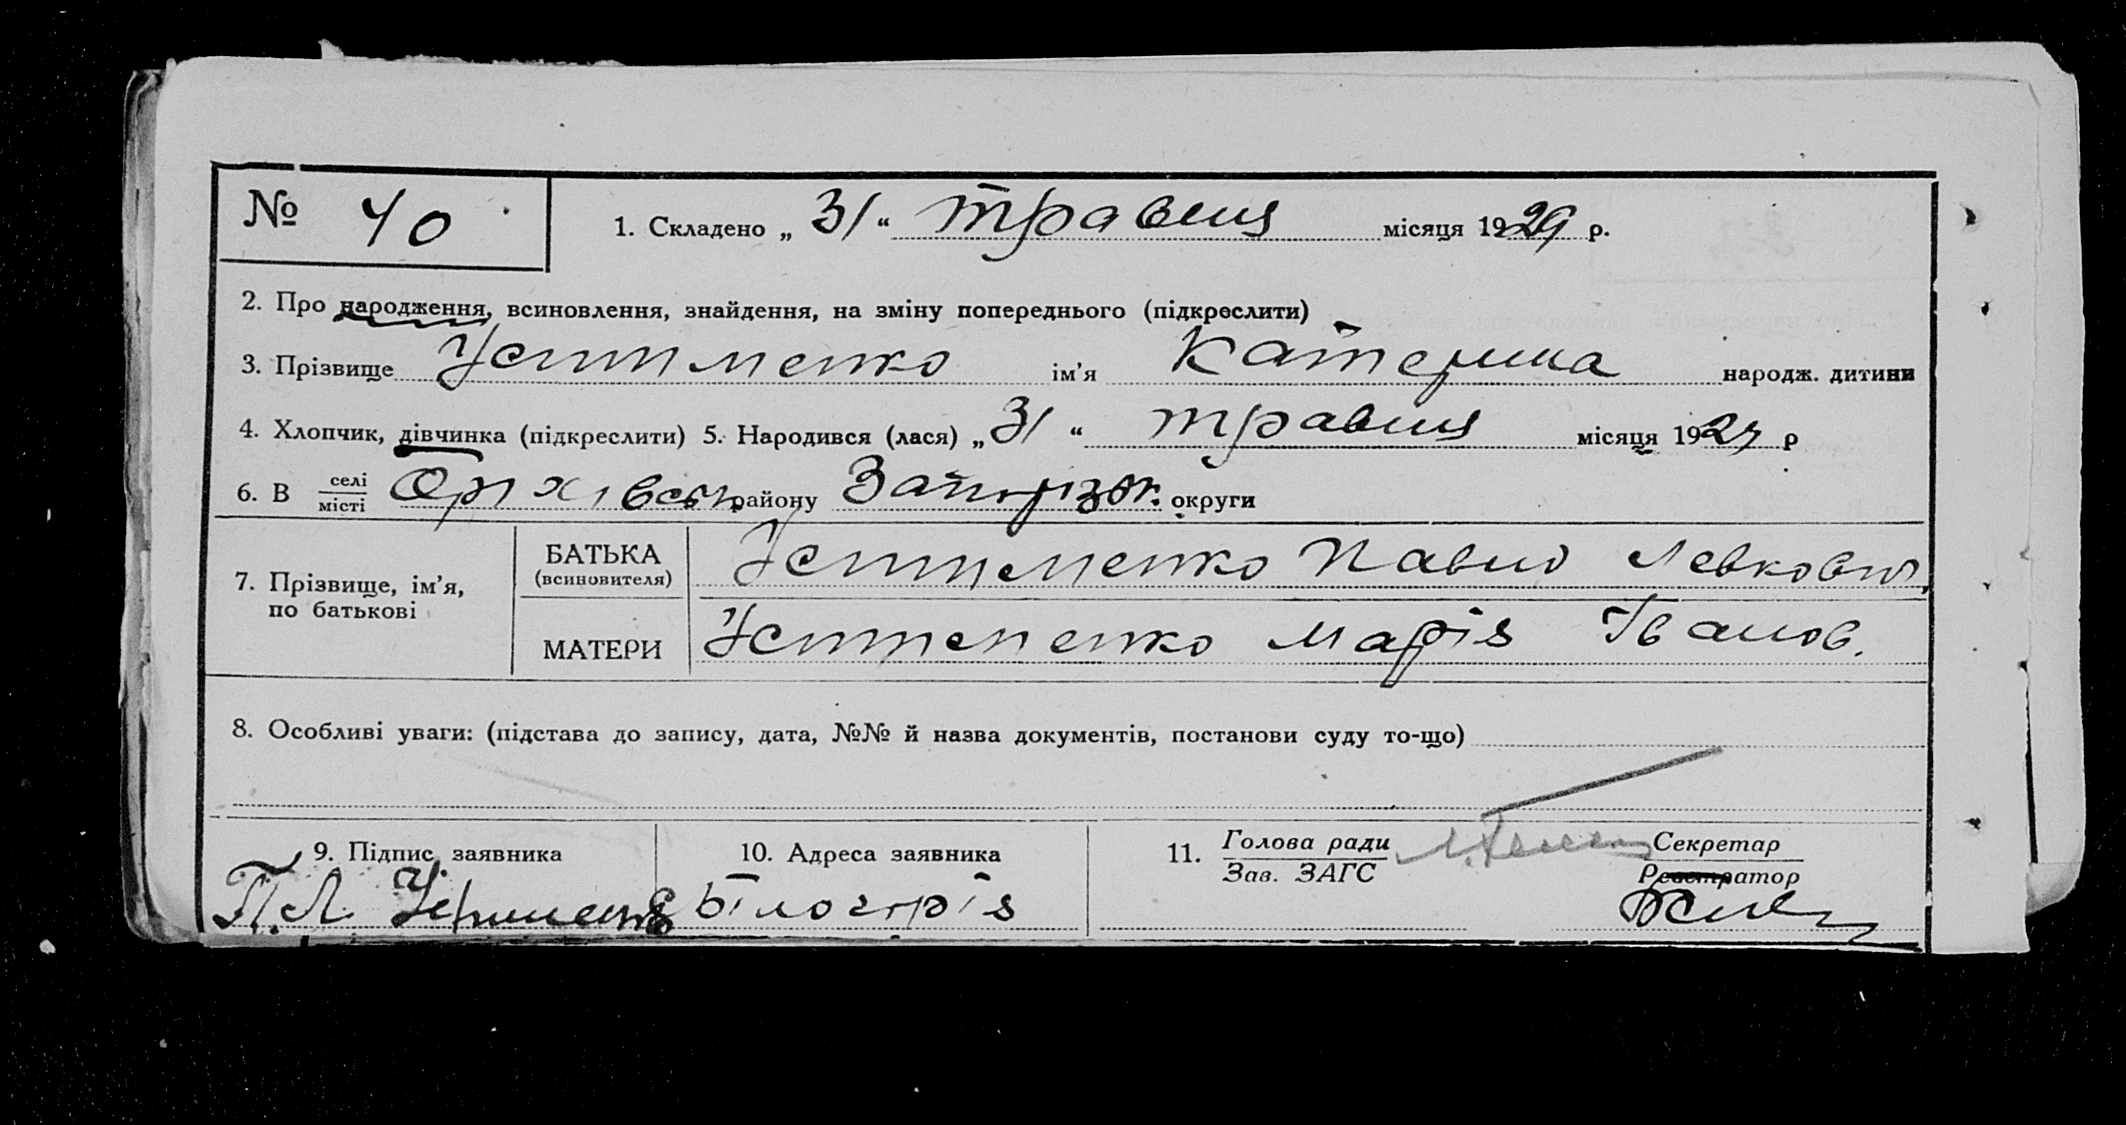 № 40
1. Складено „ 31 “ травня місяця 1929 р.
2. Про народження, всиновлення, знайдення, на зміну попереднього (підкреслити)
3. Прізвище Устименко ім’я Катерина народж. дитини
4. Хлопчик, дівчинка (підкреслити) 5. Народився (лася) „ 31 “ травня місяця 1929 р
6. В селі місті Оріхівськ. району Запорізьк. округи
7. Прізвище, ім’я, по батькові
БАТЬКА (всиновителя) Устименко Павло Левкович
МАТЕРИ Устименко Марія Іванов.
8. Особливі уваги: (підстава до запису, дата, №№ й назва документів, постанови суду то-що)
9. Підпис заявника 10. Адреса заявника 11. Голова ради Секретар
Зав. ЗАГС Реєстратор
П. Л. Устименко Білогірія